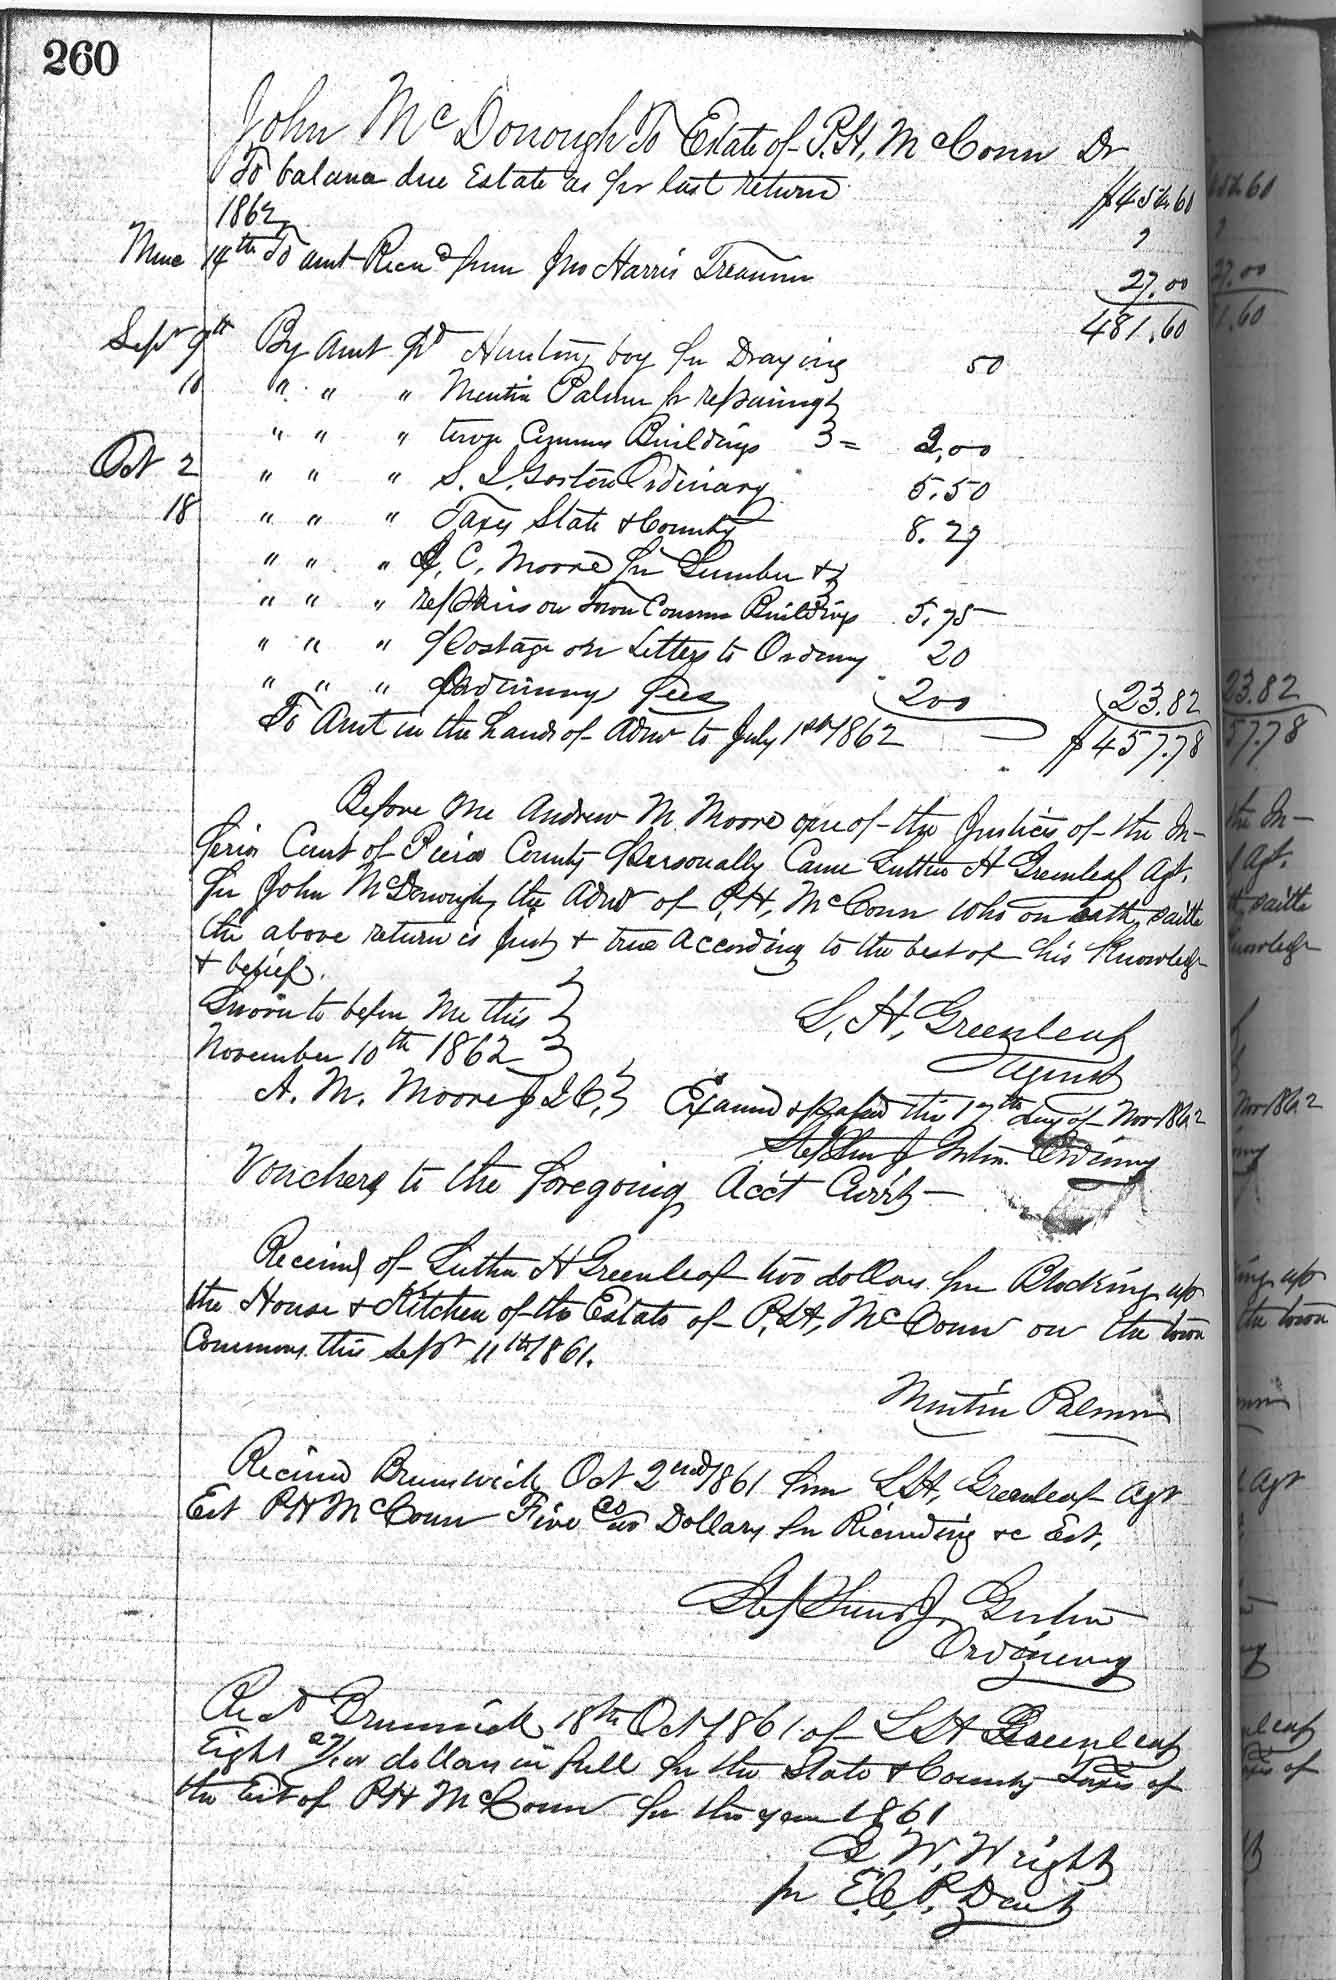 260
John McDonough To Estate of P.H. McConn Dr
To balance due Estate as pr last return $454.60
1862
14th To amt Recd from Jno Harris Treasurer 27.00
481.60
Sept 9th By Amt pd Hunting boy for Draying 50
10 " " " Mentin Palmer for repairing
" " " town Commons Buildings 3 = 2,00
Oct 2 " " " S. J. Gorton Ordinary 5.50
18 " " " Taxes State & County 8.27
" " " C. Moore for Lumber &
" " " repairs on Town Commons Buildings 5.75
" " " postage on Letters to Ordinary 20
" " " Ordinary fees 200 23.82
To Amt in the hands of Admr to July 1st 1862 $457.78
Before me Andrew M Moore one of the Justices of the In-
ferior Court of Pierce County personally Came Luther H Greenleaf Agt.
for John McDonough, the Admr of P.H. McConn who on oath, saith
the above return is just & true According to the best of his Knowledge
& belief.
Sworn to before me this
November 10th 1862
S. H. Greenleaf
Agent
A. M. Moore J I C,
Examined & passed this 17th day of Nov 1862
Stephen J Gorton Ordinary
Vouchers to the foregoing Acct Currt
Received of Luther H Greenleaf two dollars for Blocking up
the House & Kitchen of the Estate of P.H. McConn on the town
Commons this Sept 11th 1861.
Mentin Palmer
Received Brunswick Oct 2nd 1861 from L H, Greenleaf Agt
Est P H McConn Five 50/100 Dollars for Recording &c Est,
Stephen J. Gorton
Ordinary
Recd Brunswick 18th Oct 1861 of L H Greenleaf
Eight 27/100 dollars in full for the State & County Taxes of
the Est of P H McConn for the year 1861
G W. Wright
for E. C. P. Dart
23.82
57.78
the In-
Agt.
saith
Knowledge
Nov 1862
up
the town
Agt